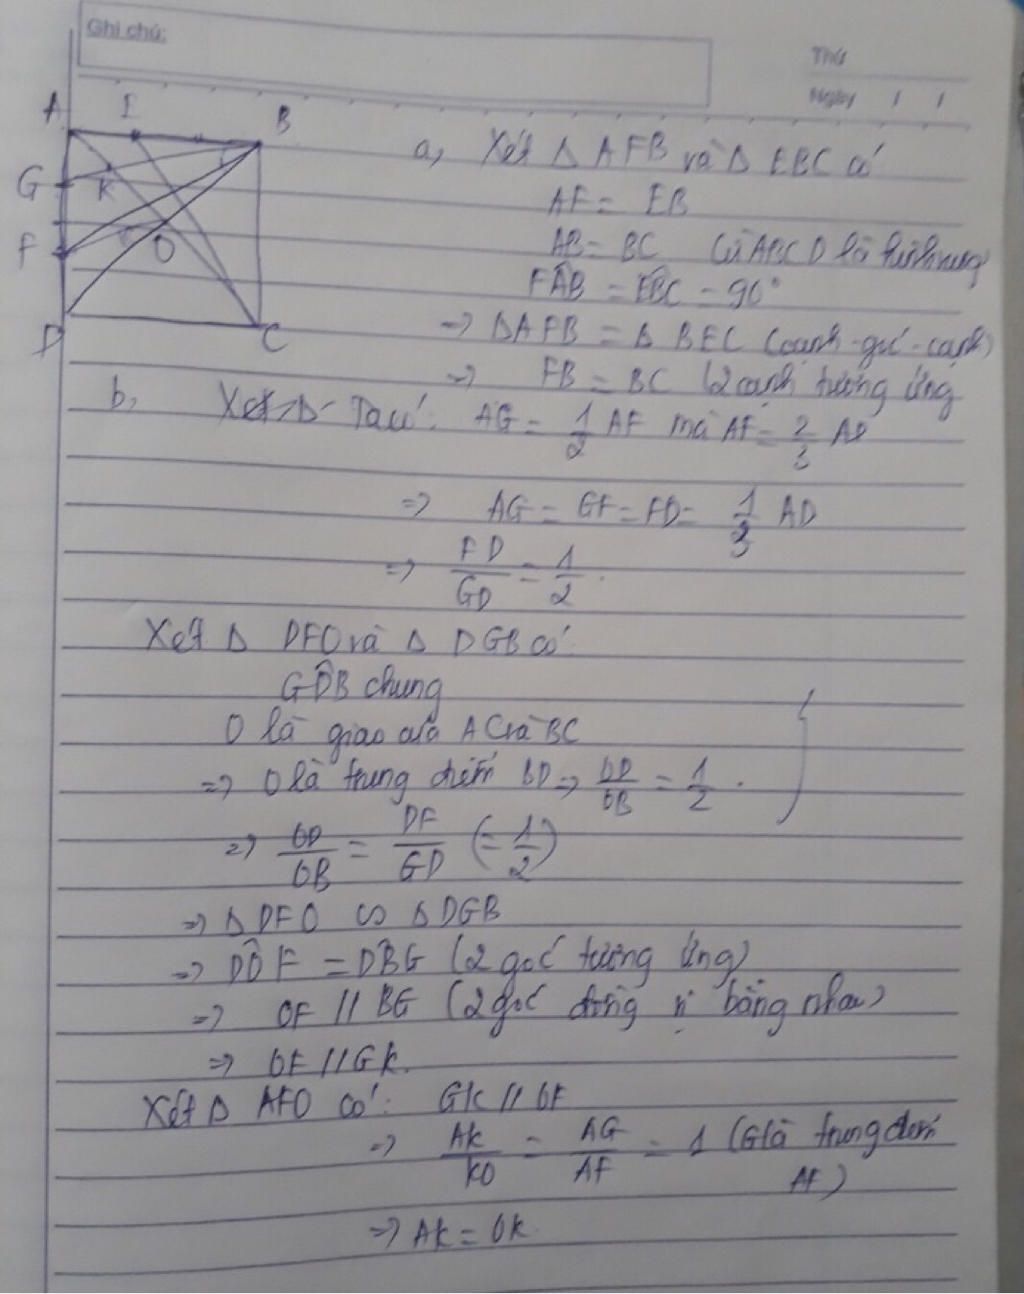 Ghi chú:
Thứ
Ngày / /
A I B
G K
F O
D C
a, Xét Δ AFB và Δ EBC có
AF = EB
AB = BC (vì ABCD là hình vuông
FÂB = EB̂C = 90°
=> Δ AFB = Δ BEC (cạnh-góc-cạnh)
=> FB = BC (2 cạnh tương ứng
b, Xét Δ Ta có: AG = 1/2 AF mà AF = 2/3 AD
=> AG = GF = FD = 1/3 AD
=> FD/GD = 1/2.
Xét Δ DFO và Δ DGB có:
GD̂B chung
O là giao của AC và BC
=> O là trung điểm BD => OD/OB = 1/2.
=> OD/OB = DF/GD (= 1/2)
=> Δ DFO ∽ Δ DGB
=> DÔF = DB̂G (2 góc tương ứng)
=> OF // BG (2 góc đồng vị bằng nhau)
=> OF // GK.
Xét Δ AFO có: GK // OF
=> AK/KO = AG/AF = 1 (G là trung điểm
AF)
=> AK = OK.